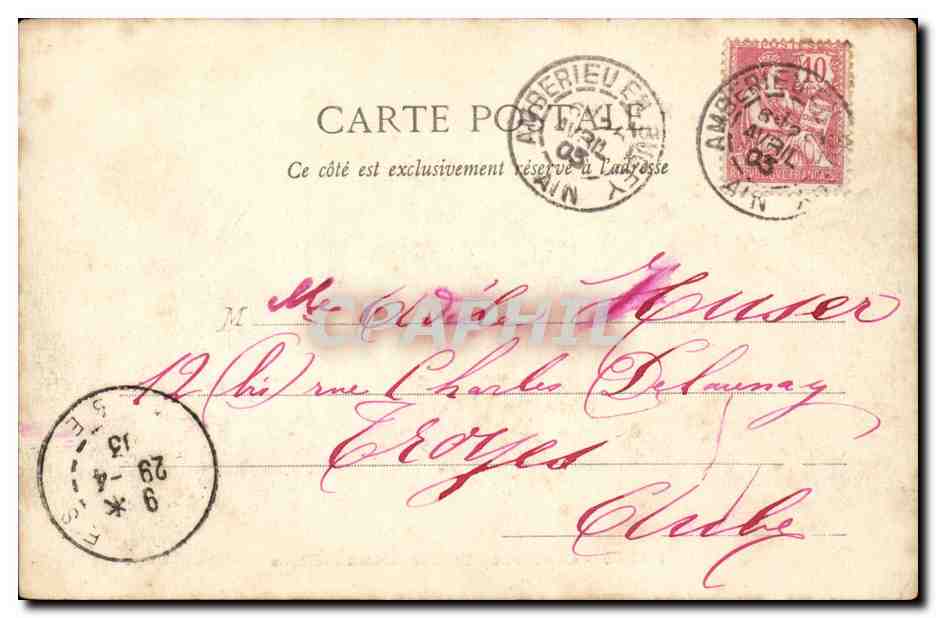 POSTES
10
REPUBLIQUE FRANCAISE
AMBERIEU EN BUGEY
AVRIL
03
AIN
AMBERIEU
AVRIL
03
AIN
CARTE POSTALE
Ce côté est exclusivement réservé à l'adresse
M Me Adèle Muser
CPAPHIL
12 (bis) rue Charles Delaunay
Troyes
Aube
9
29 -4